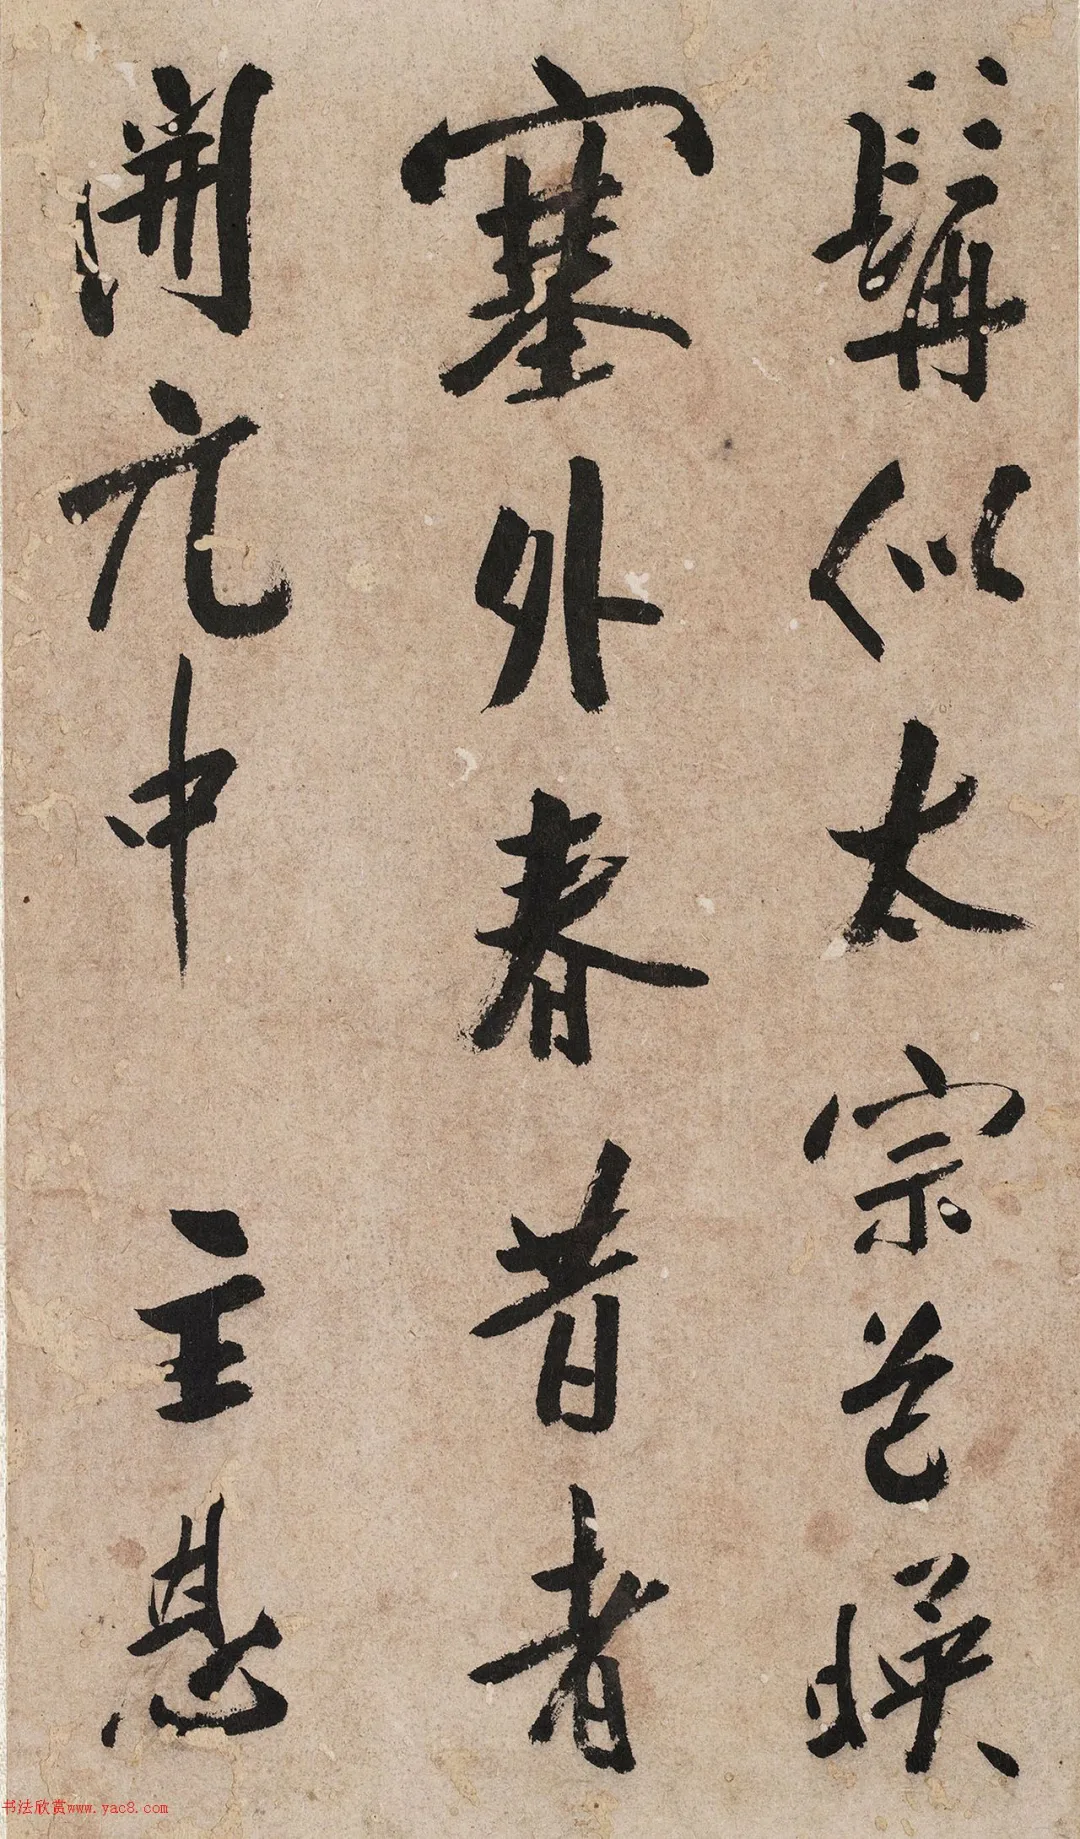 髯似太宗色暎
塞外春昔者
開元中 主恩
书法欣赏www.yac8.com